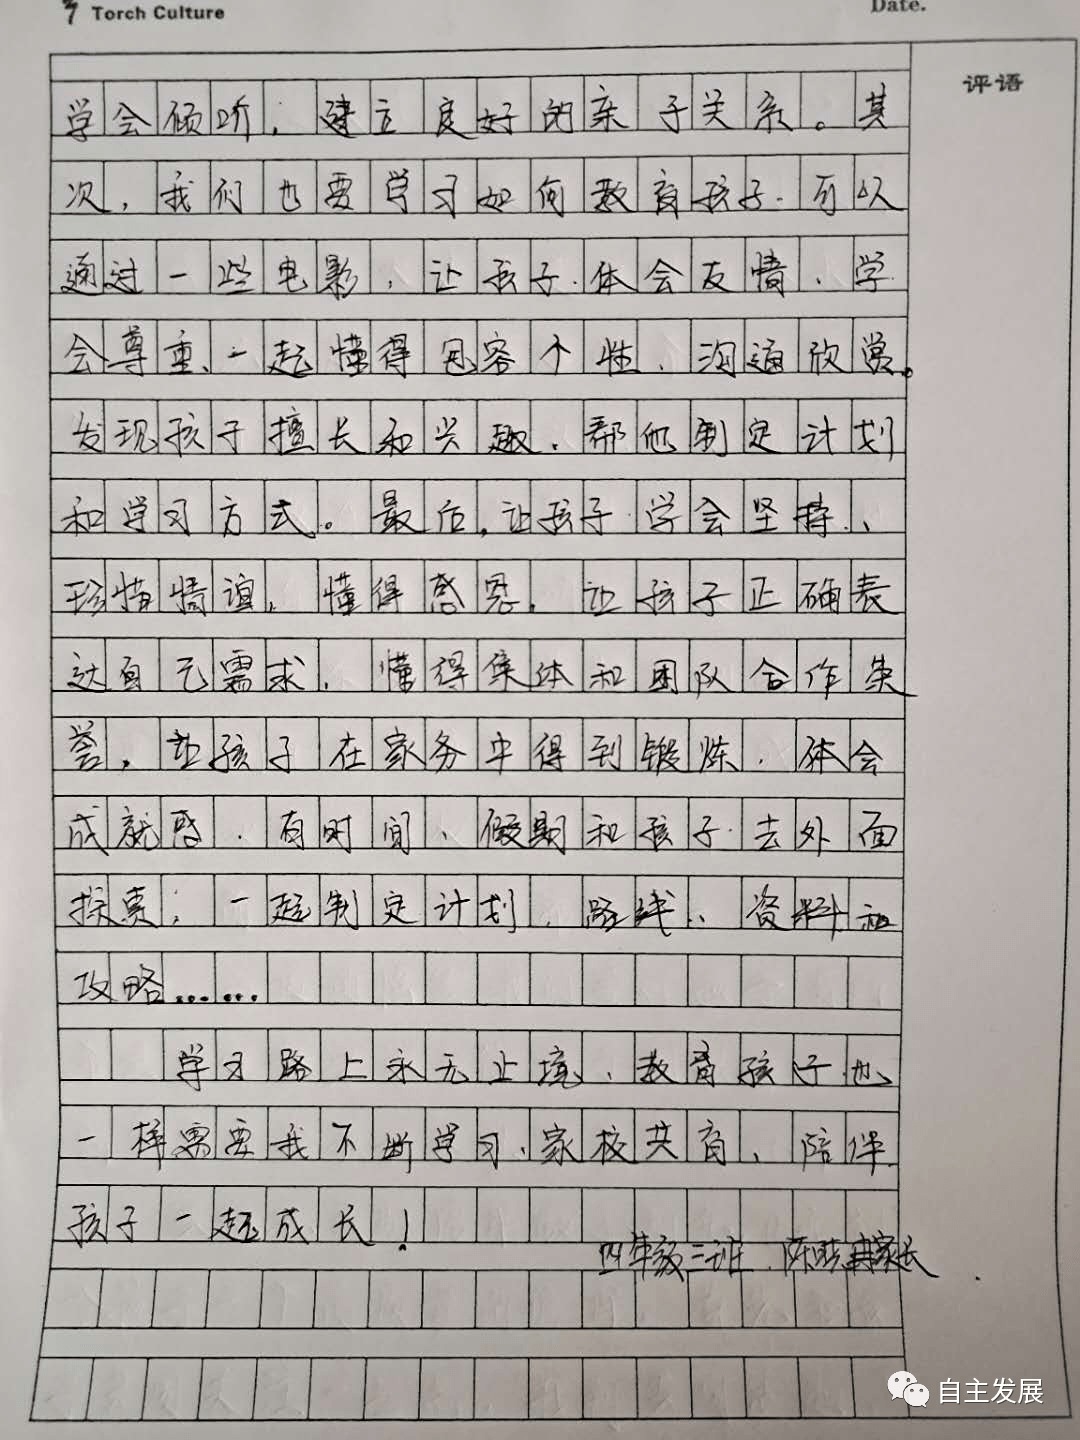 Torch Culture
Date.
评语
学会倾听，建立良好的亲子关系。其
次，我们也要学习如何教育孩子.可以
通过一些电影，让孩子.体会友情、学
会尊重、一起懂得包容个性、沟通欣赏。
发现孩子擅长和兴趣.帮他制定计划
和学习方式。最后,让孩子学会坚持、
珍惜情谊，懂得感恩.让孩子正确表
达自己需求，懂得集体和团队合作荣
誉，让孩子在家务中得到锻炼.体会
成就感.有时间、假期和孩子去外面
探索，一起制定计划、路线、资料和
攻略......
学习路上永无止境、教育孩子也
一样需要我不断学习、家校共育、陪伴
孩子一起成长！
四年级三班 陈 冉家长
自主发展